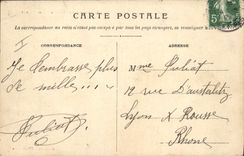 CARTE POSTALE
La correspondance au recto n'est pas acceptée par tous les pays étrangers, se renseigner à la
CORRESPONDANCE
ADRESSE
Je t'embrasse plus
de mille...
Juliat
Mme Juliat
12 rue d'austerlitz
Lyon X Rousse
Rhône
5